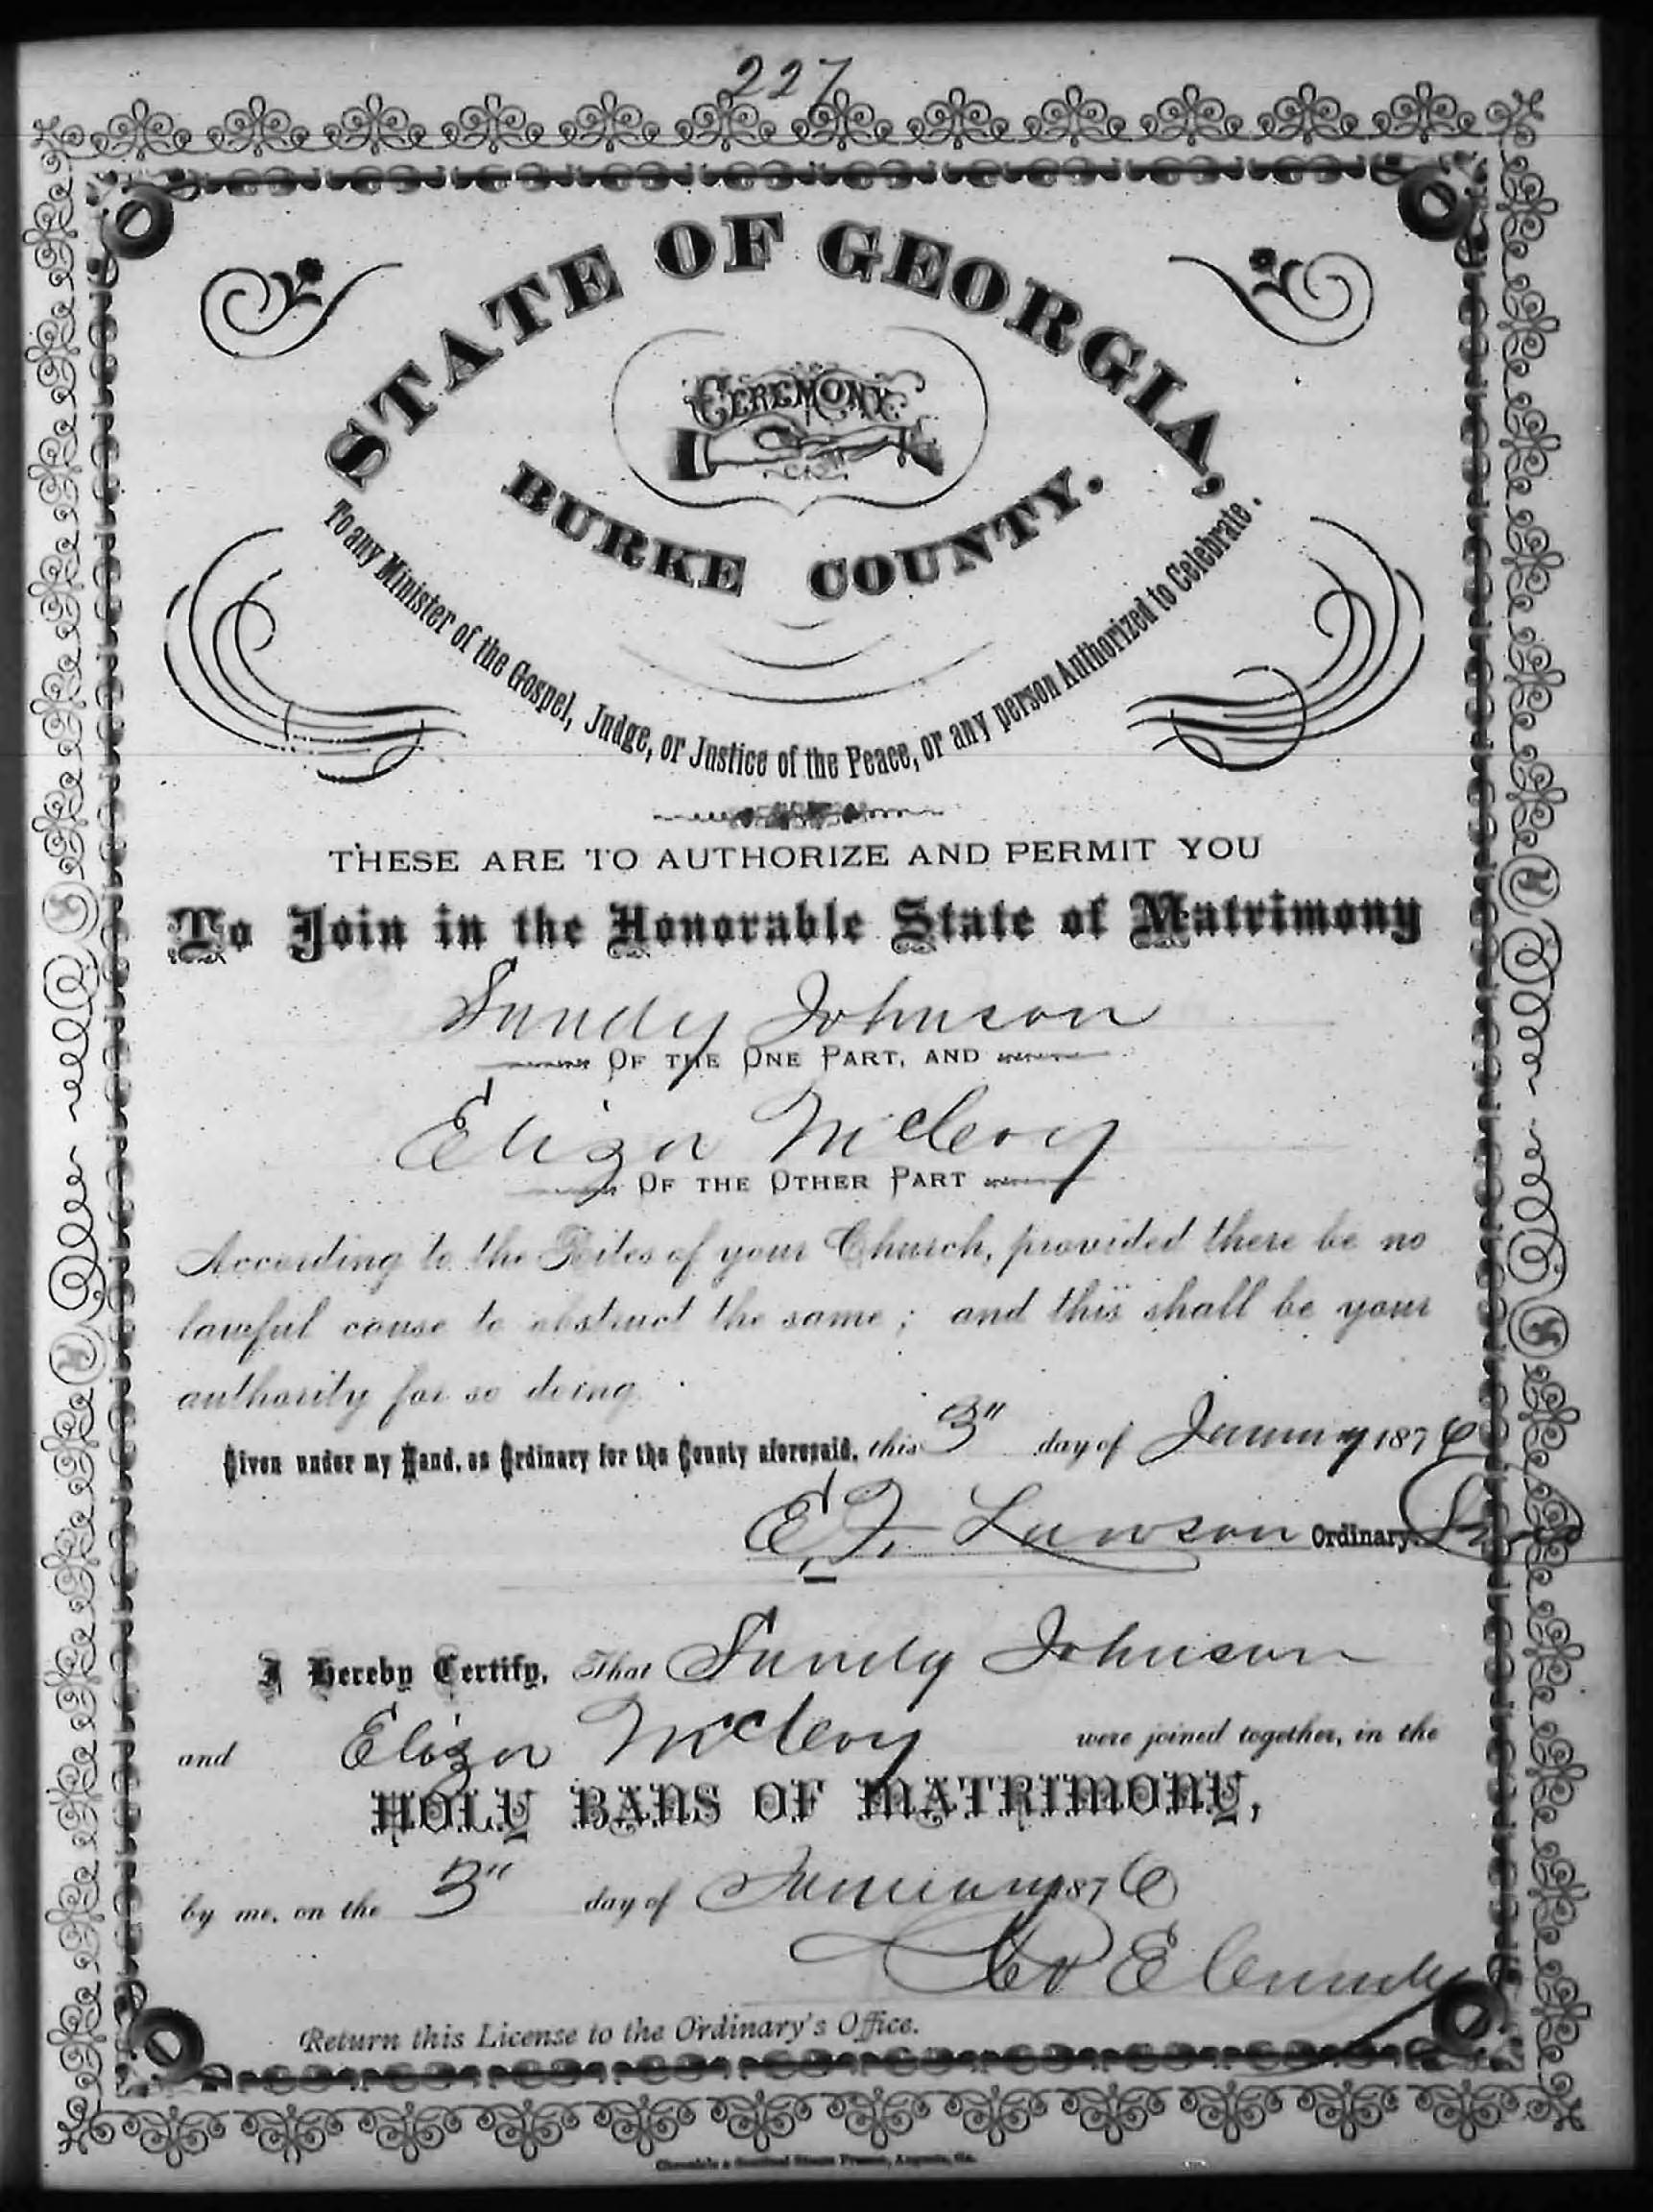 227
STATE OF GEORGIA,
CEREMONY
BURKE COUNTY.
To any Minister of the Gospel, Judge, or Justice of the Peace, or any person Authorized to Celebrate.
THESE ARE TO AUTHORIZE AND PERMIT YOU
To Join in the Honorable State of Matrimony
Sandy Johnson
OF THE ONE PART, AND
Eliza McCleory
OF THE OTHER PART
According to the Rites of your Church, provided there be no
lawful cause to obstruct the same; and this shall be your
authority for so doing.
Given under my Hand, as Ordinary for the County aforesaid, this 3" day of January 1876
E. F. Lawson Ordinary.
I Hereby Certify, That Sandy Johnson
and Eliza McCleory were joined together, in the
HOLY BANS OF MATRIMONY,
by me, on the 3" day of January 1876
E
Return this License to the Ordinary's Office.
Chronicle & Sentinel Steam Presses, Augusta, Ga.